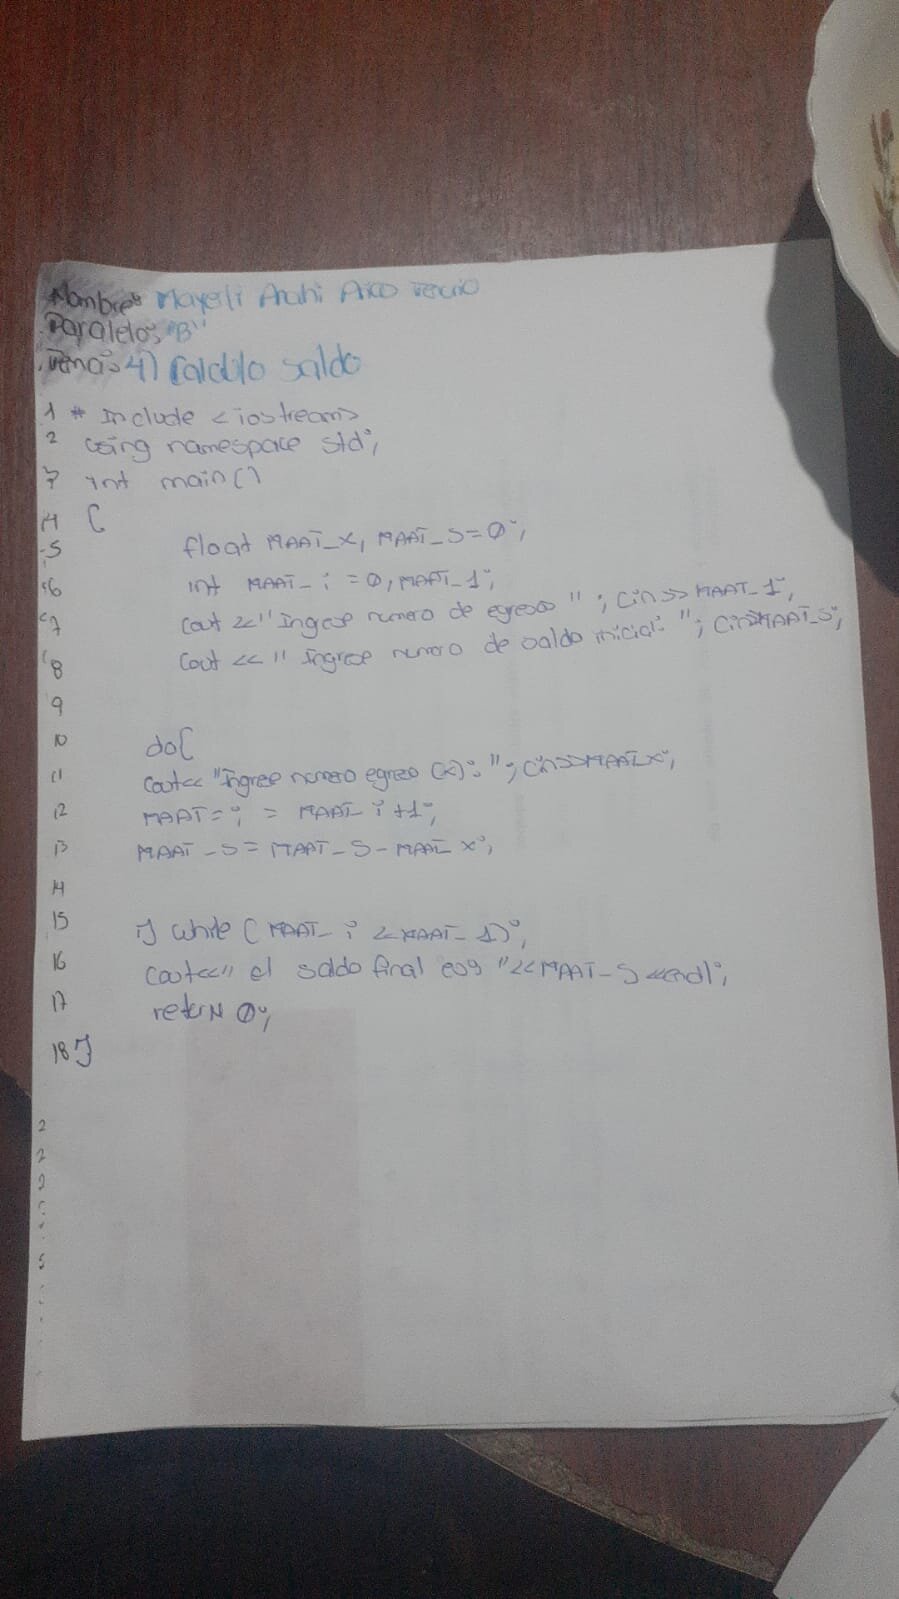 Nombre: Mayerli Anahi
Paralelo: "B"
Tema: 4) Calculo saldo
1 # Include <iostream>
2 using namespace std;
3 int main()
4 {
5 float MAAT_x, MAAT_S=0;
6 int MAAT_i=0, MAAT_1;
7 cout <<" Ingrese numero de egresos "; cin>> MAAT_1;
8 cout << " Ingrese numero de saldo inicial: "; cin>>MAAT_S;
9
10 do{
11 cout<< "Ingrese numero egreso (x): "; cin>>MAAT_x;
12 MAAT_i = MAAT_i+1;
13 MAAT_S = MAAT_S - MAAT_x;
14
15 } while (MAAT_i <MAAT_1);
16 cout<<" el saldo final es: "<<MAAT_S<<endl;
17 return 0;
18 }
2
2
2
5